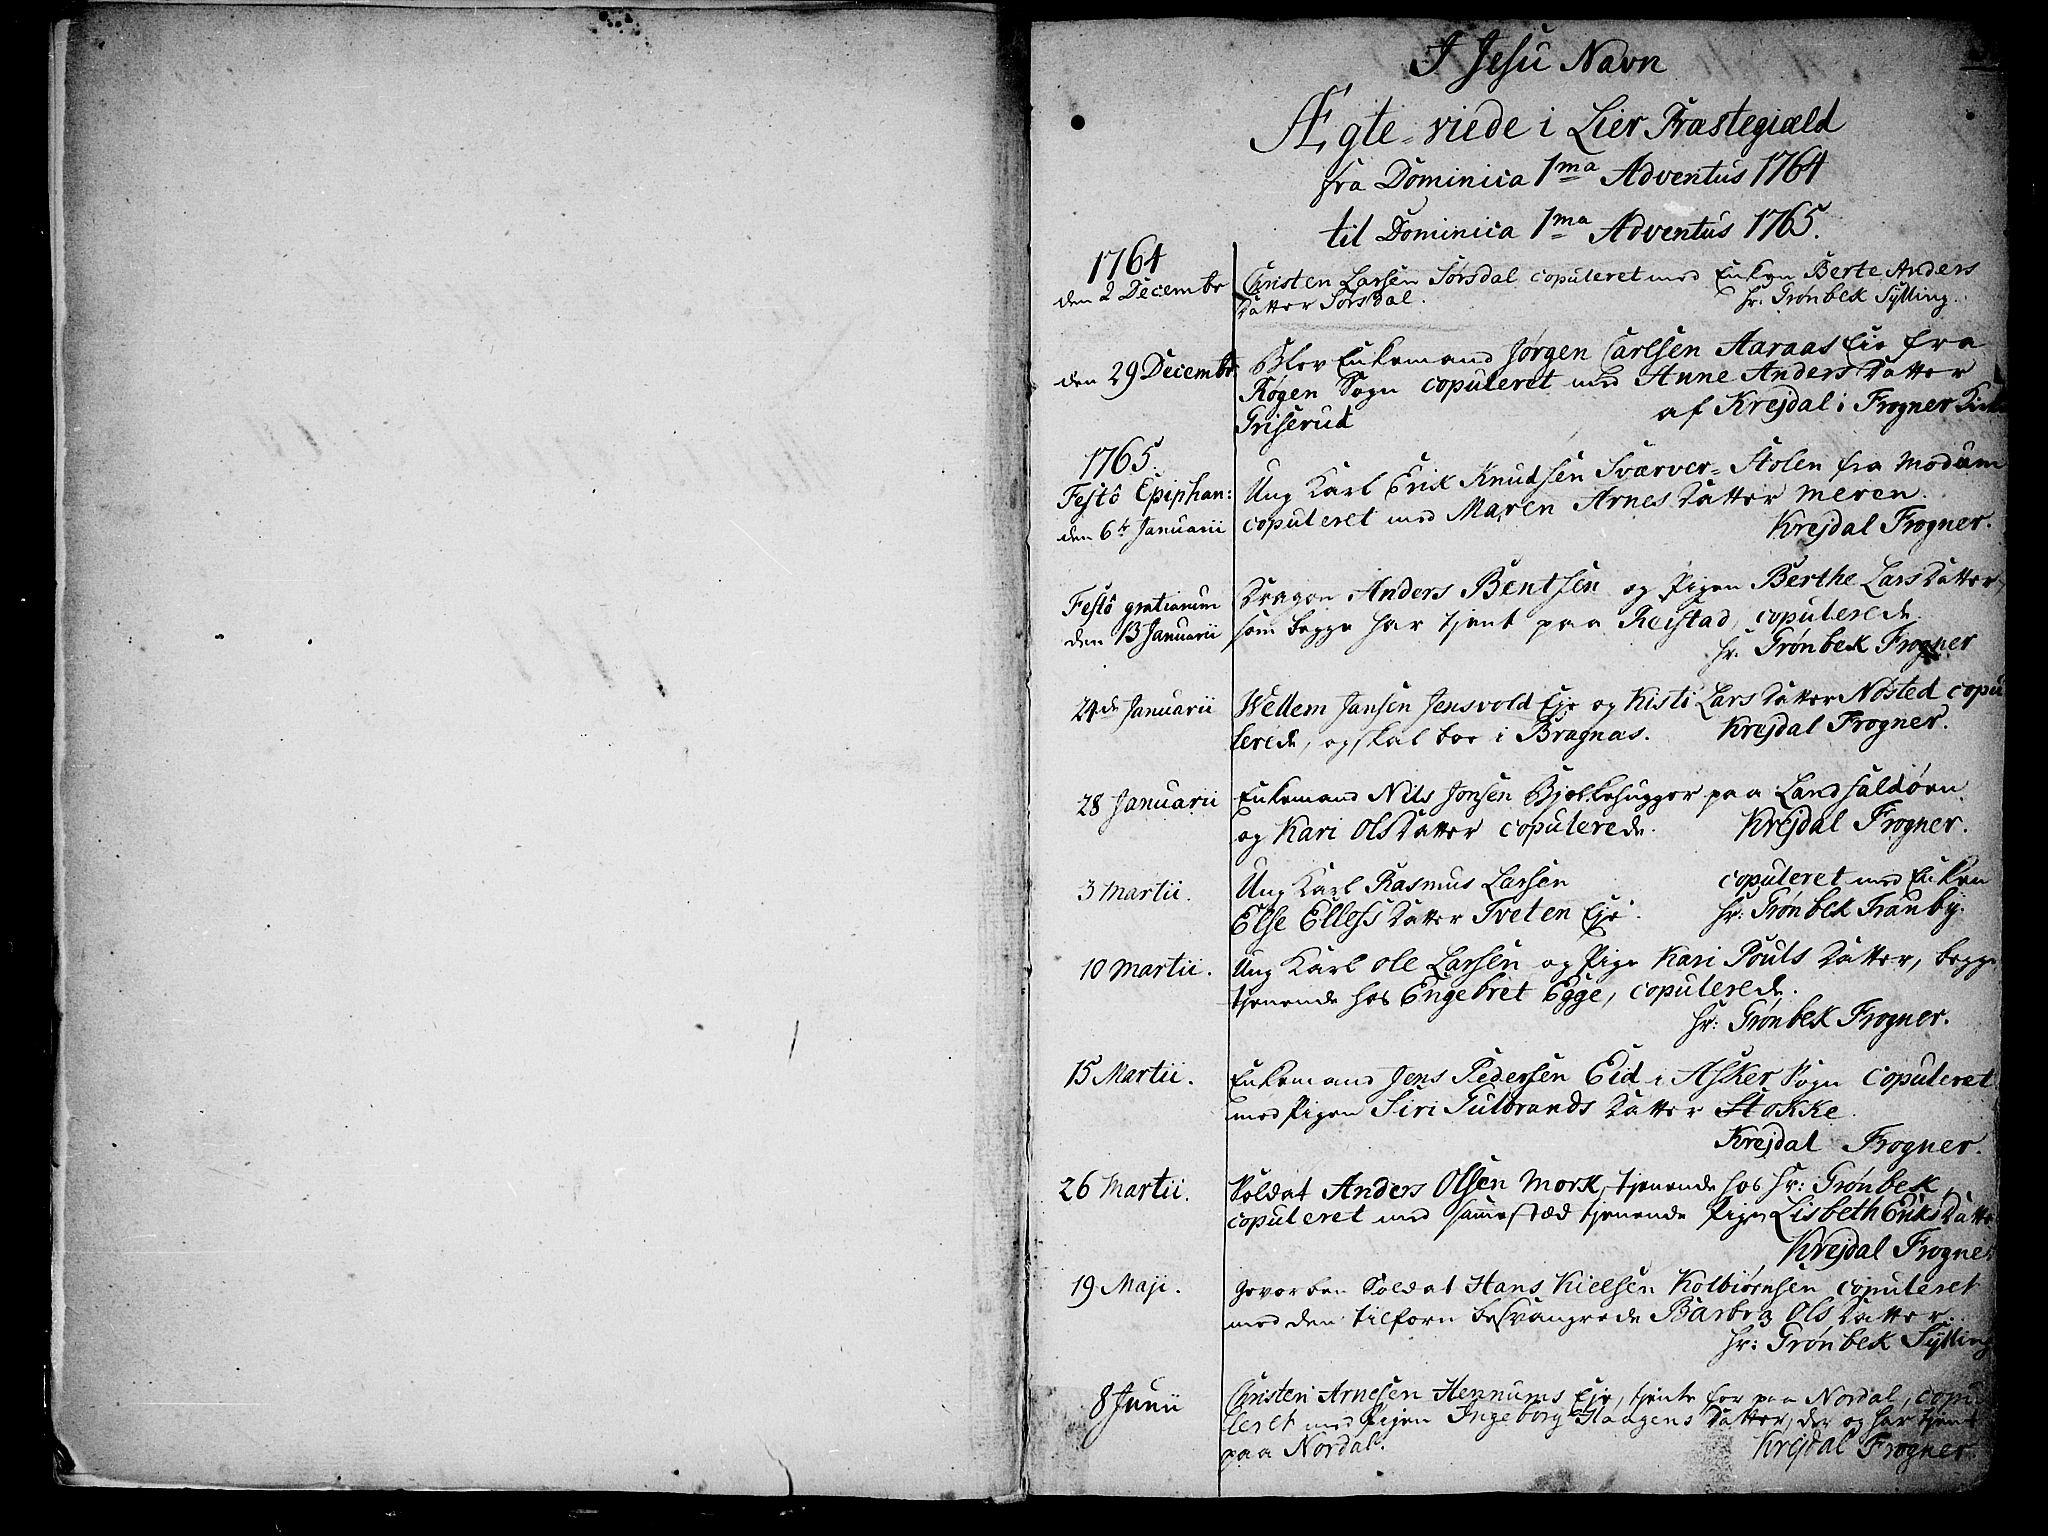 I Jesu Navn
Ægte-viede i Lier Præstegiæld
fra Dominica 1ma Adventus 1764
til Dominica 1ma Adventus 1765.
1764
den 2 Decembr Christen Larsen Sørsdal copuleret med Enken Berte Anders
Datter Sørsdal. hr. Grønbek Sylling.
den 29 Decembr Blev Enkemand Jørgen Carlsen Aaraas Eie fra
Røgen Sogn copuleret med Anne Anders Datter
Griserud af Krejdal i Frogner
1765.
Festô Epiphan: Ung Karl Erik Knudsen Sværver-Stolen fra Modum
den 6te Januarii copuleret med Maren Arnes Datter Meren.
Krejdal Frogner.
Festô gratiarum Dragon Anders Bentsen og Pigen Berthe Lars Datter,
den 13 Januarii som begge har tjent paa Reistad, copulerede.
hr: Grønbek Frogner
24de Januarii Wellem Jansen Jensvold Eje og Kisti Lars Datter Nøsted copu
lerede, og skal boe i Bragnæs. Krejdal Frogner.
28 Januarii Enkemand Nils Jonsen Bjelkehugger paa Landfaldøen
og Kari Ols Datter copulerede. Krejdal Frogner.
3 Martii. Ung Karl Rasmus Larsen copuleret med Enken
Else Ellefs Datter Tveten Eje. hr: Grønbek Tranby.
10 Martii. Ung Karl Ole Larsen og Pige Kari Pouls Datter, begge
tjenende hos Engebret Egge, copulerede.
hr: Grønbek Frogner.
15 Martii. Enkemand Jens Pedersen Eid i Asker Sogn copuleret
med Pigen Siri Gulbrands Datter Stokke.
Krejdal Frogner.
26 Martii. Soldat Anders Olsen Mork, tjenende hos hr: Grønbek,
copuleret med sammestæd tjenende Pige Lisbeth Eriks Datter
Krejdal Frogner.
19 Maji. Gevorben Soldat Hans Kielsen Kolbiørnsen copuleret
med den tilforn besvangrede Barbra Ols Datter.
hr: Grønbek Sylling
8 Junii Christen Arnesen Hennums Eje, tjente før paa Nordal, copu
leret med Pigen Ingeborg Haagens Datter, der og har tjent
paa Nordal. Krejdal Frogner